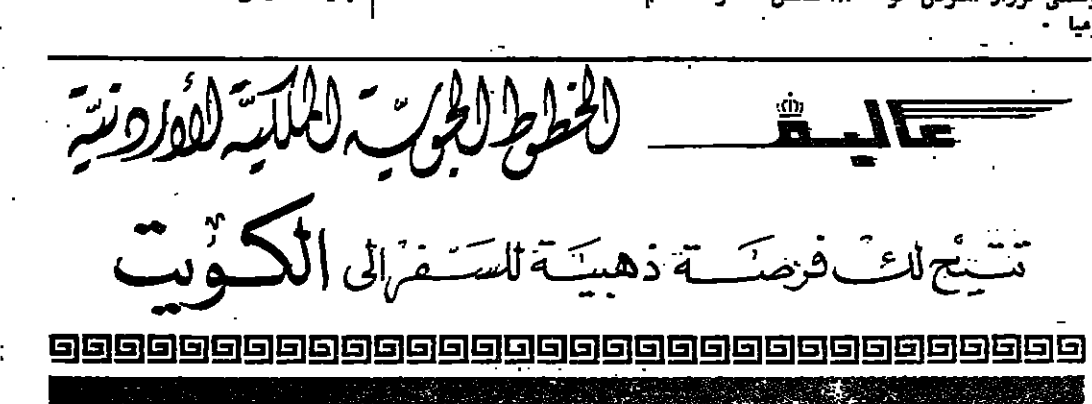 عاليه الخطوط الجوية الملكية الأردنية
تتيح لك فرصة ذهبية للسفر الى الكويت